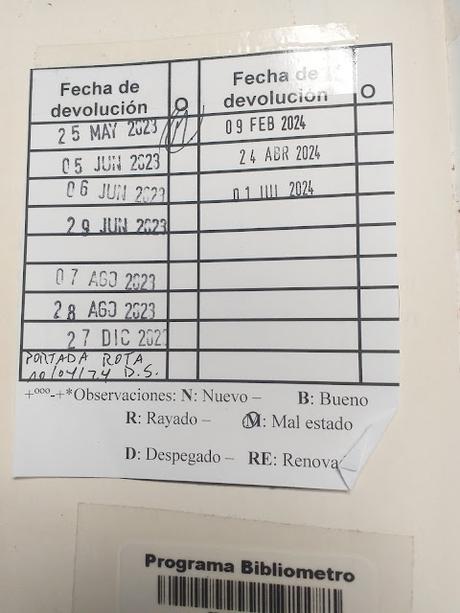 Fecha de
devolución
O
Fecha de
devolución
O
25 MAY 2023
09 FEB 2024
05 JUN 2023
24 ABR 2024
06 JUN 2023
01 JUL 2024
29 JUN 2023
07 AGO 2023
28 AGO 2023
27 DIC 202
PORTADA ROTA
10/04/24 D.S.
+ººº-+*Observaciones: N: Nuevo – B: Bueno
R: Rayado – M: Mal estado
D: Despegado – RE: Renova
Programa Bibliometro